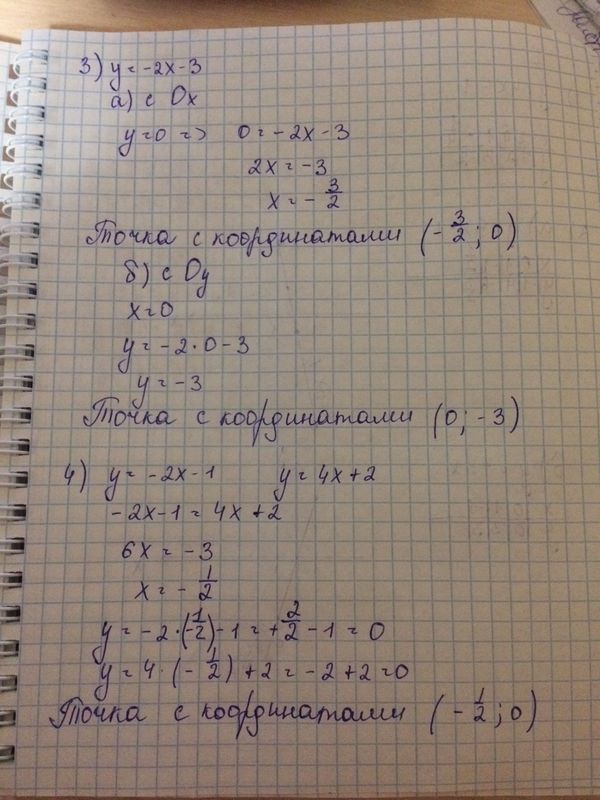 3) y = -2x-3
а) с Ox
y=0 => 0 = -2x-3
2x = -3
x = - 3/2
Точка с координатами (- 3/2 ; 0)
б) с Oy
x=0
y = -2·0-3
y = -3
Точка с координатами (0; -3)
4) y = -2x-1 y = 4x+2
-2x-1 = 4x+2
6x = -3
x = - 1/2
y = -2·(-1/2)-1 = + 2/2 - 1 = 0
y = 4·(- 1/2) + 2 = -2+2=0
Точка с координатами (- 1/2 ; 0)